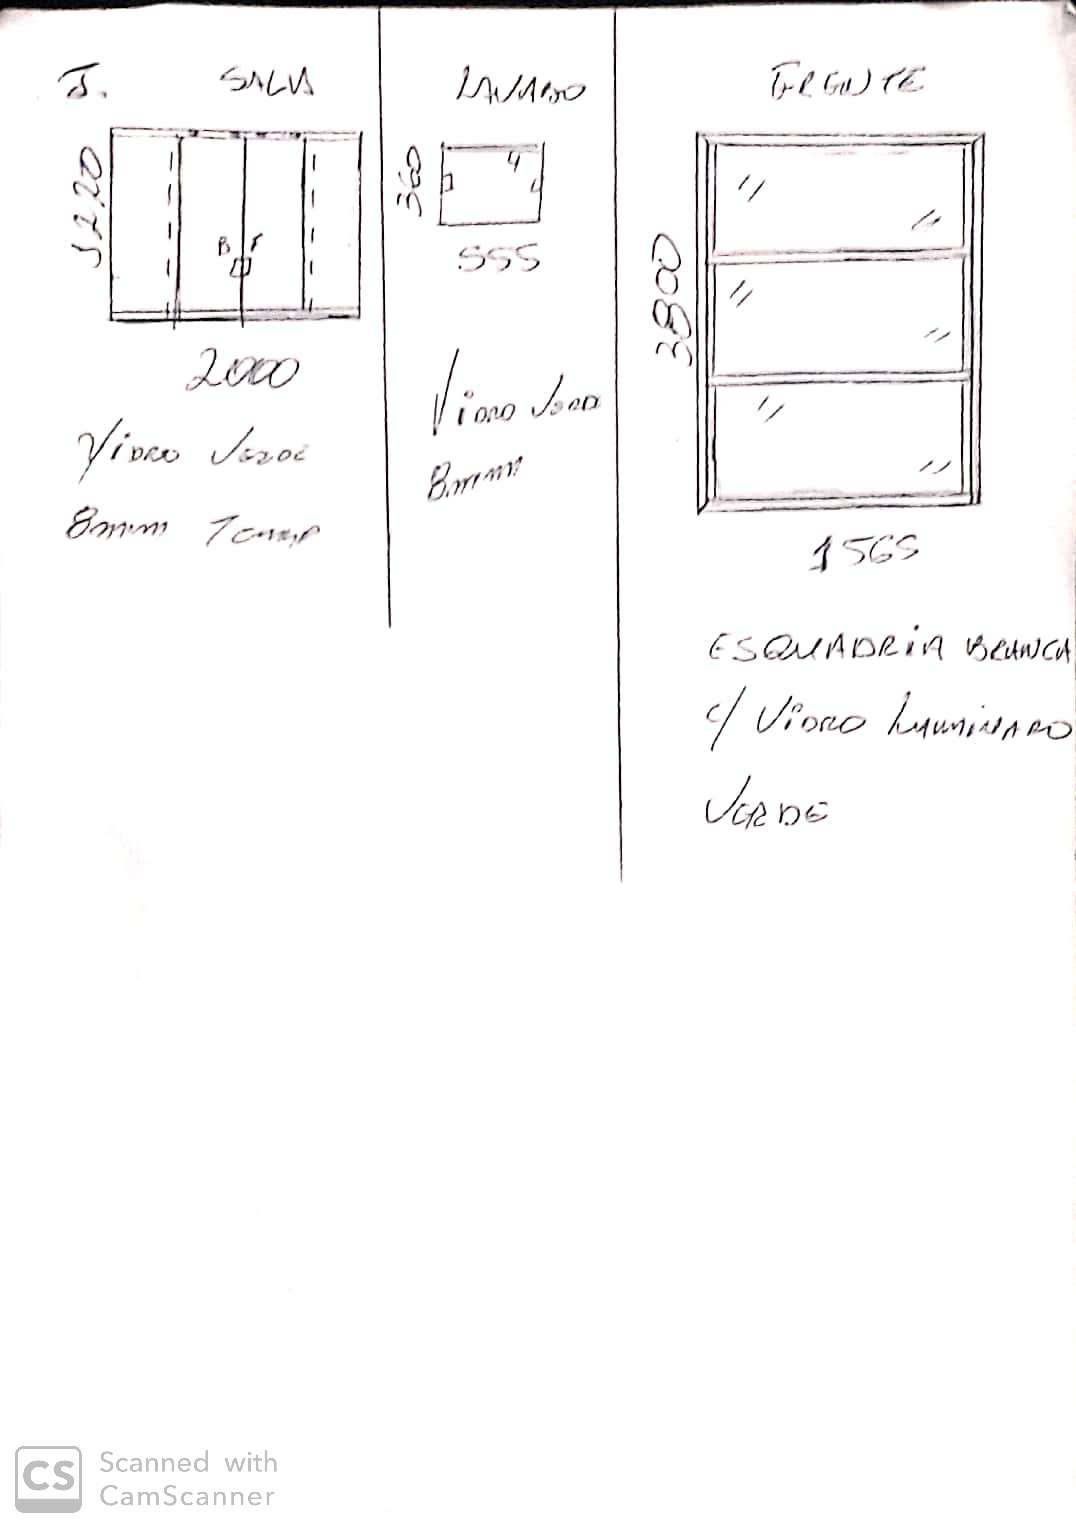 J. SALA
1220
B F
2000
VIDRO VERDE
8mm Temp
LAVABO
360
555
VIDRO VERD
8mm
FRENTE
3800
1565
ESQUADRIA BRANCA
c/ VIDRO LAMINARO
VERDE
CS Scanned with
CamScanner